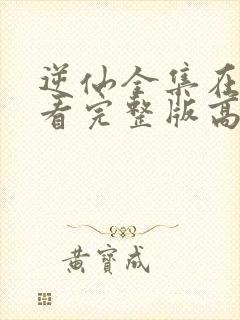 逆仙全集在
看完整版高
黄寶成